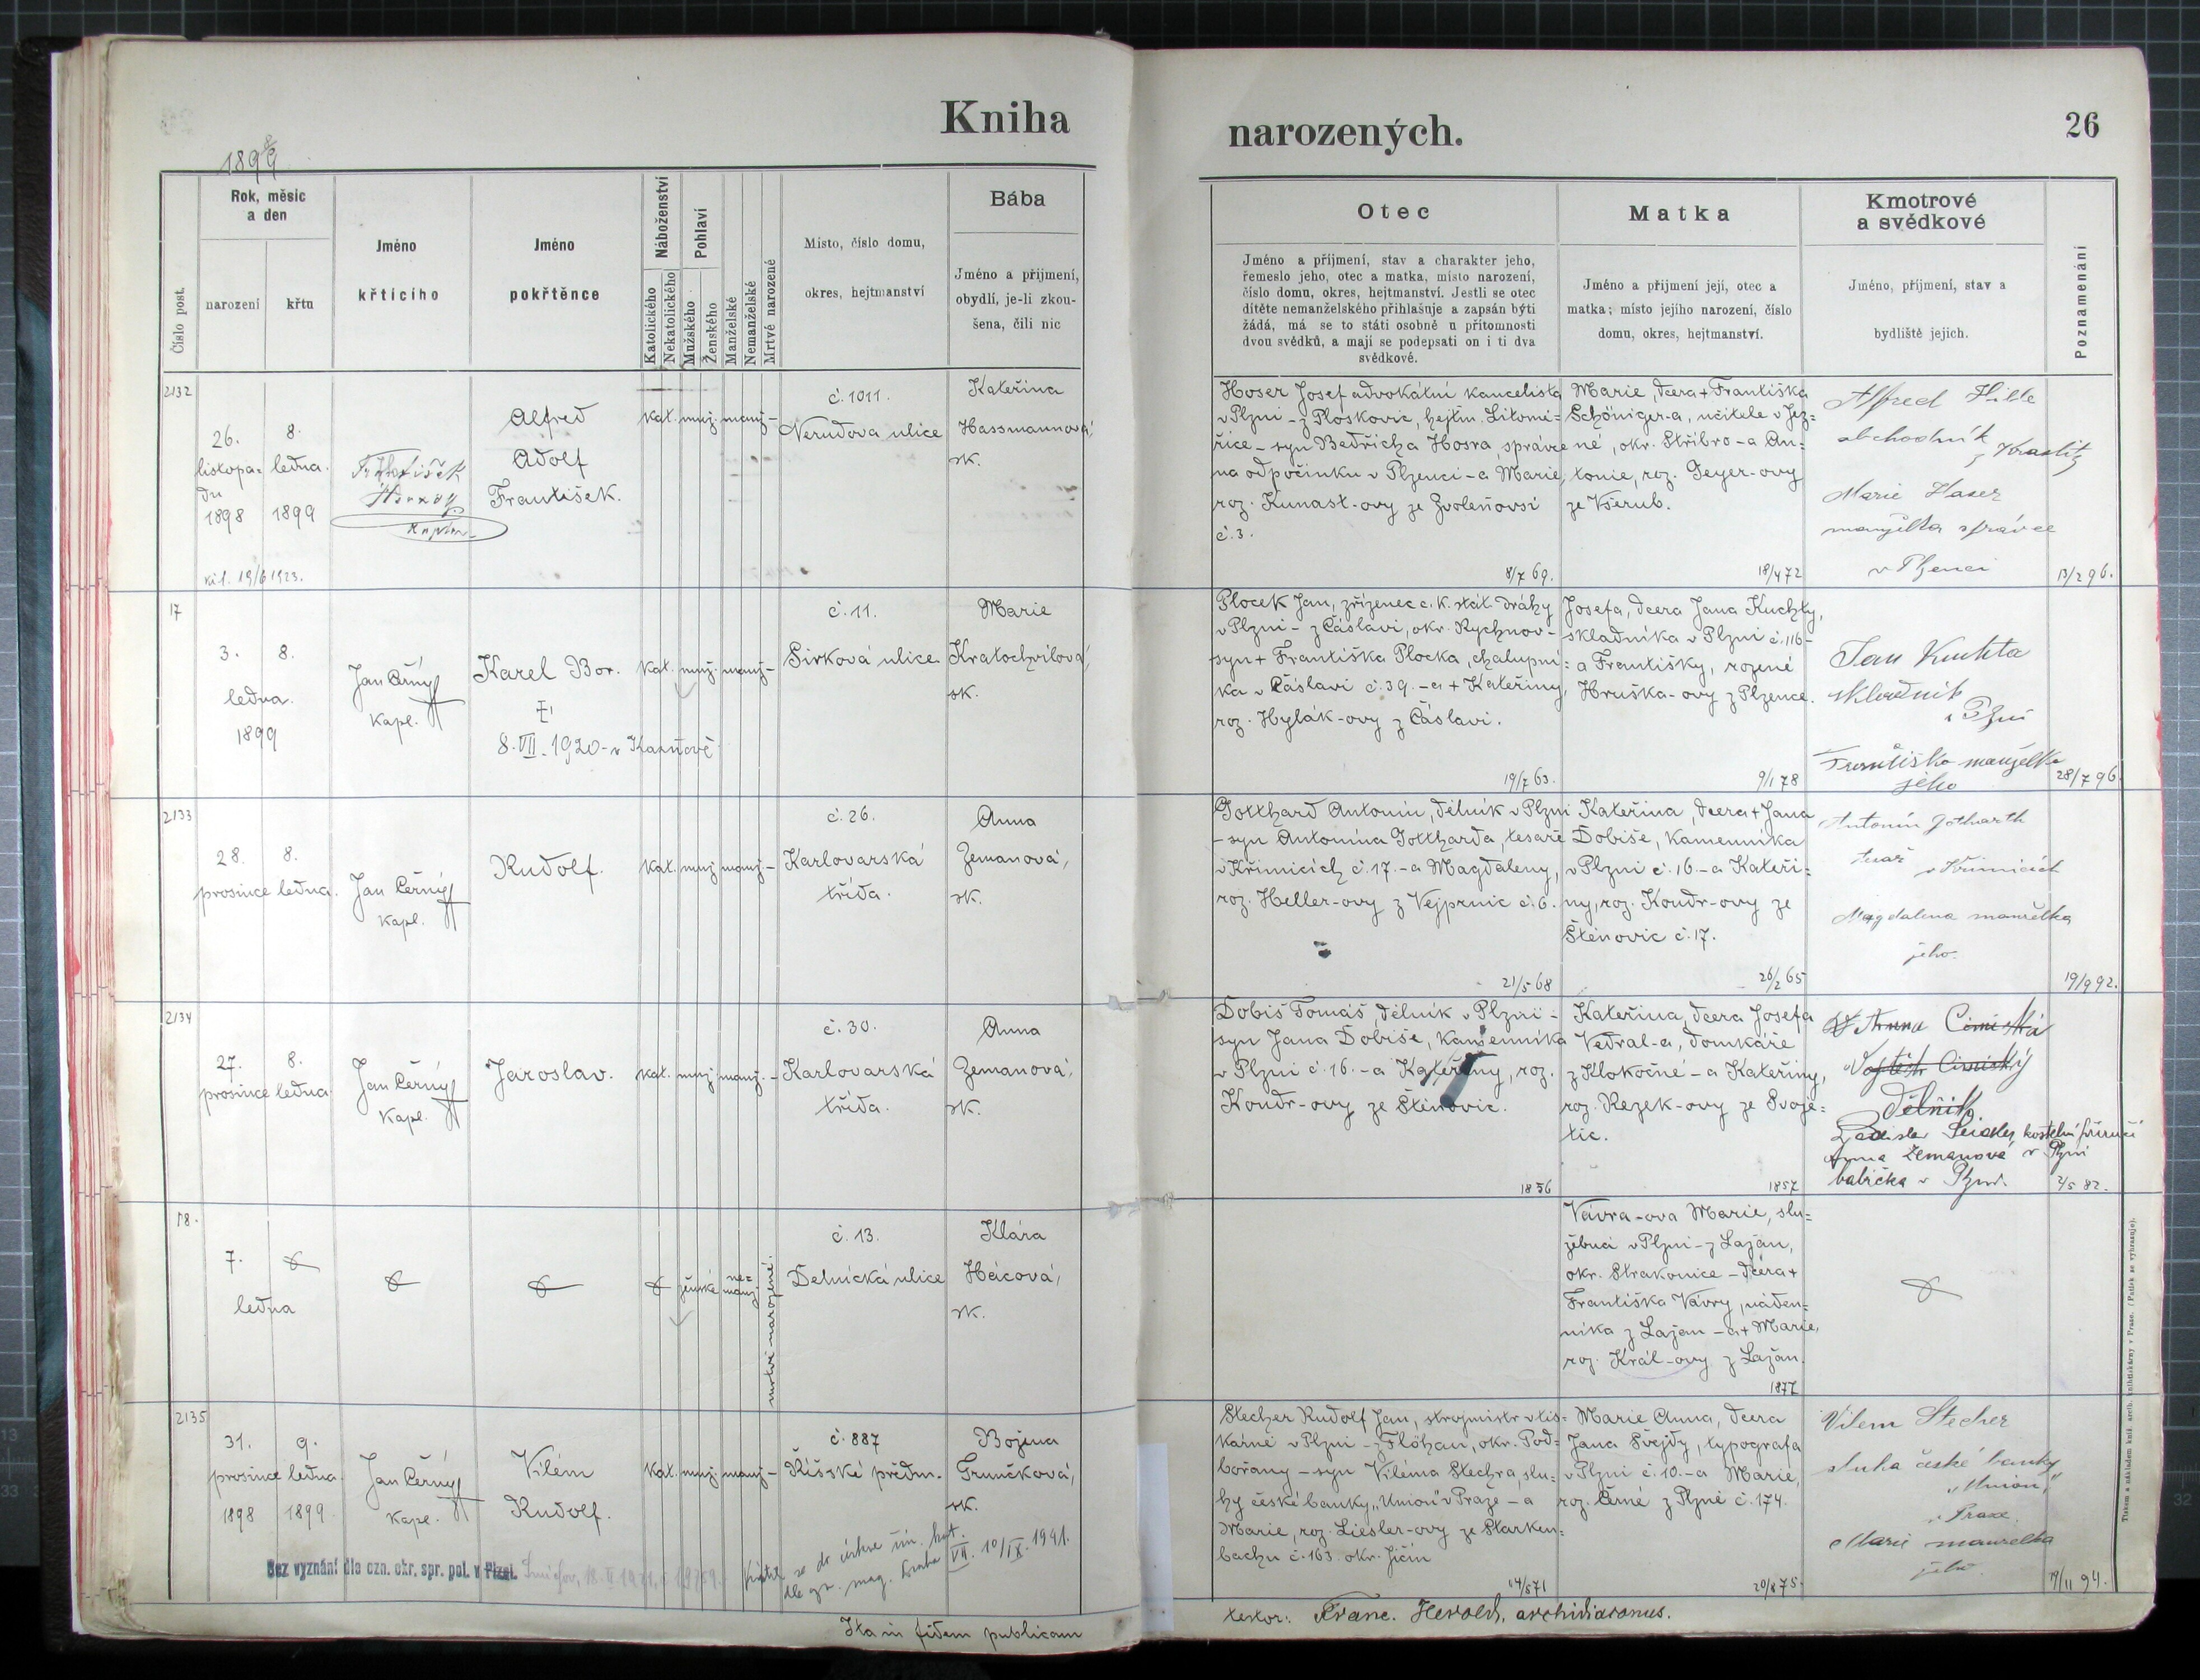 Kniha
narozených.
26
1898/9
Číslo post.
Rok, měsíc
a den
narození
křtu
Jméno
křtícího
Jméno
pokřtěnce
Náboženství
Katolického
Nekatolického
Pohlaví
Mužského
Ženského
Manželské
Nemanželské
Mrtvé narozené
Místo, číslo domu,
okres, hejtmanství
Bába
Jméno a příjmení,
obydlí, je-li zkou-
šena, čili nic
Otec
Jméno a příjmení, stav a charakter jeho,
řemeslo jeho, otec a matka, místo narození,
číslo domu, okres, hejtmanství. Jestli se otec
dítěte nemanželského přihlašuje a zapsán býti
žádá, má se to státi osobně u přítomnosti
dvou svědků, a mají se podepsati on i ti dva
svědkové.
Matka
Jméno a příjmení její, otec a
matka; místo jejího narození, číslo
domu, okres, hejtmanství.
Kmotrové
a svědkové
Jméno, příjmení, stav a
bydliště jejich.
Poznamenání
2132
26.
listopa=
du
1898
8.
ledna.
1899
19/6 1923.
František
Alfred
Adolf
František.
kat.
muž.
manž.
č. 1011.
Nerudova ulice
Kateřina
Hassmannová,
zk.
Hoser Josef advokátní kancelista
v Plzni - z Ploskovic, hejtm. Litomě=
řice - syn Bedřicha Hosra, správce
na odpočinku v Plzenci - a Marie,
roz. Kunast-ovy ze Zvoleňovsi
č. 3.
8/7 69.
Marie, dcera + Františka
Schöniger-a, učitele v Jez=
né, okr. Stříbro - a An=
tonie, roz. Geyer-ovy
ze Všerub.
18/4 72
Alfred Hille
obchodník
z Kraslitz
Marie Haser
manželka správce
v Plzenci
13/2 96.
17
3.
8.
ledna.
1899
Jan Černý
kapl.
Karel Bor.
8. VII. 1920 - v Kaznově
kat.
muž.
manž.
č. 11.
Sirková ulice
Marie
Kratochvílová,
zk.
Plocek Jan, zřízenec c. k. stát. dráhy
v Plzni - z Čáslavi, okr. Rychnov -
syn + Františka Plocka, chalupní=
ka v Čáslavi č. 39. - a + Kateřiny,
roz. Hylák-ovy z Čáslavi.
19/7 63.
Josefa, dcera Jana Kuchty,
skladníka v Plzni č. 116 -
a Františky, rozené
Hruška-ovy z Plzence.
9/1 78
Jan Kuchta
skladník
v Plzni
Františka manželka
jeho
28/7 96.
2133
28.
prosince
8.
ledna.
Jan Černý
kapl.
Rudolf.
kat.
muž.
manž.
č. 26.
Karlovarská
třída.
Anna
Zemanová,
zk.
Gotthard Antonín, dělník v Plzni
- syn Antonína Gottharda, tesaře
v Křimicích č. 17. - a Magdaleny,
roz. Heller-ovy z Vejprnic č. 6.
21/5 68
Kateřina, dcera + Jana
Dobiše, kamenníka
v Plzni č. 16. - a Kateři=
ny, roz. Kondr-ovy ze
Štěnovic č. 17.
26/2 65
Antonín Gotharth
tesař
v Křimicích
Magdalena manželka
jeho.
19/9 92.
2134
27.
prosince
8.
ledna.
Jan Černý
kapl.
Jaroslav.
kat.
muž.
manž.
č. 30.
Karlovarská
třída.
Anna
Zemanová,
zk.
Dobiš Tomáš, dělník v Plzni -
syn Jana Dobiše, kamenníka
v Plzni č. 16. - a Kateřiny, roz.
Kondr-ovy ze Štěnovic.
1856
Kateřina, dcera Josefa
Vedral-a, domkáře
z Hlokočné - a Kateřiny,
roz. Rezek-ovy ze Svoje=
tic.
1857
Anna
Vojtěch
dělník.
Ladislav Seidler, kostelní
Anna Zemanová v Plzni
babička v Plzni.
2/5 82.
18.
7.
ledna
ženské
ne=
manž.
mrtvě narozené.
č. 13.
Dělnická ulice
Klára
Hácová,
zk.
Vávra-ova Marie, slu=
žebná v Plzni - z Lažan,
okr. Strakonice - dcera +
Františka Vávry, náden=
níka z Lažan - a + Marie,
roz. Král-ovy z Lažan.
1877
2135
31.
prosince
1898
9.
ledna.
1899
Jan Černý
kapl.
Vilém
Rudolf.
kat.
muž.
manž.
č. 887
Říšské předm.
Božena
Grunčková,
zk.
Stecher Rudolf Jan, strojmistr v tis=
kárně v Plzni - z Flöhau, okr. Pod=
bořany - syn Viléma Stechra, slu=
hy české banky "Union" v Praze - a
Marie, roz. Liesler-ovy ze Starken=
bachu č. 163. okr. Jičín
14/8 71
Marie Anna, dcera
Jana Švejdy, typografa
v Plzni č. 10. - a Marie,
roz. Černé z Plzně č. 174.
20/8 75.
Vilem Stecher
sluha české banky
"Union"
v Praze.
Marie manželka
jeho.
Bez vyznání dle ozn. okr. spr. pol. v Plzni. Smíchov,
VII. 10/IX. 1941.
Ita in fidem publicam
testor: Franc. Herold, archidiaconus.